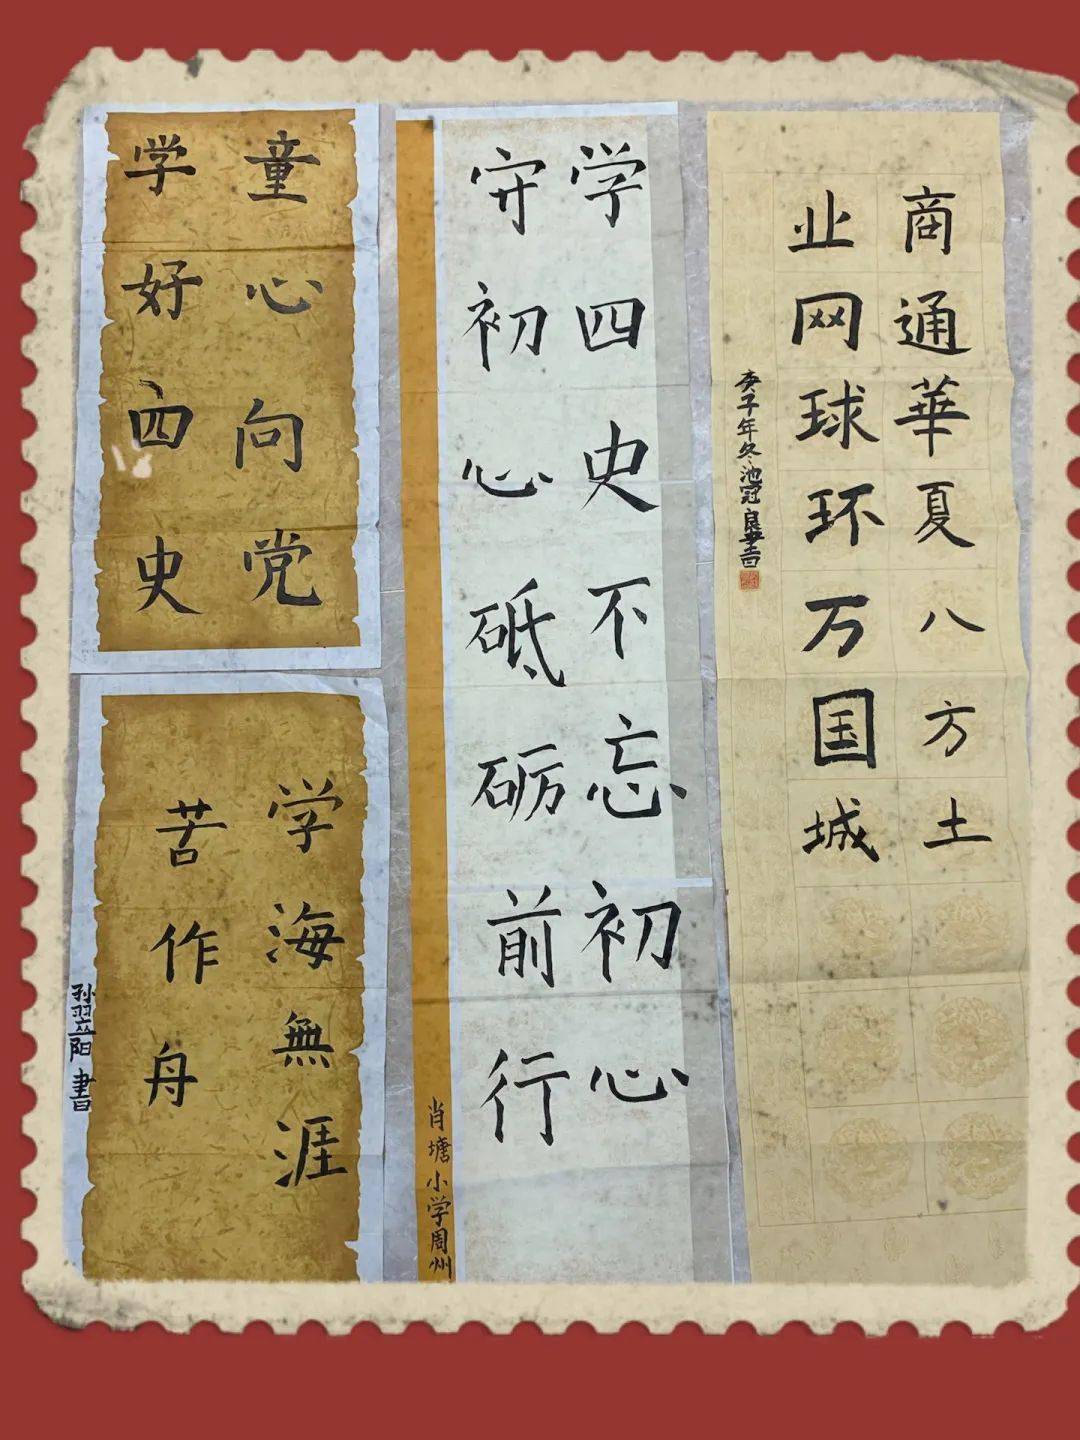 童心向党
学好四史
学海無涯
苦作舟
孙翌阳書
学四史不忘初心
守初心砥砺前行
肖塘小学周州
商通華夏八方土
业网球环万国城
庚子年冬池冠良書